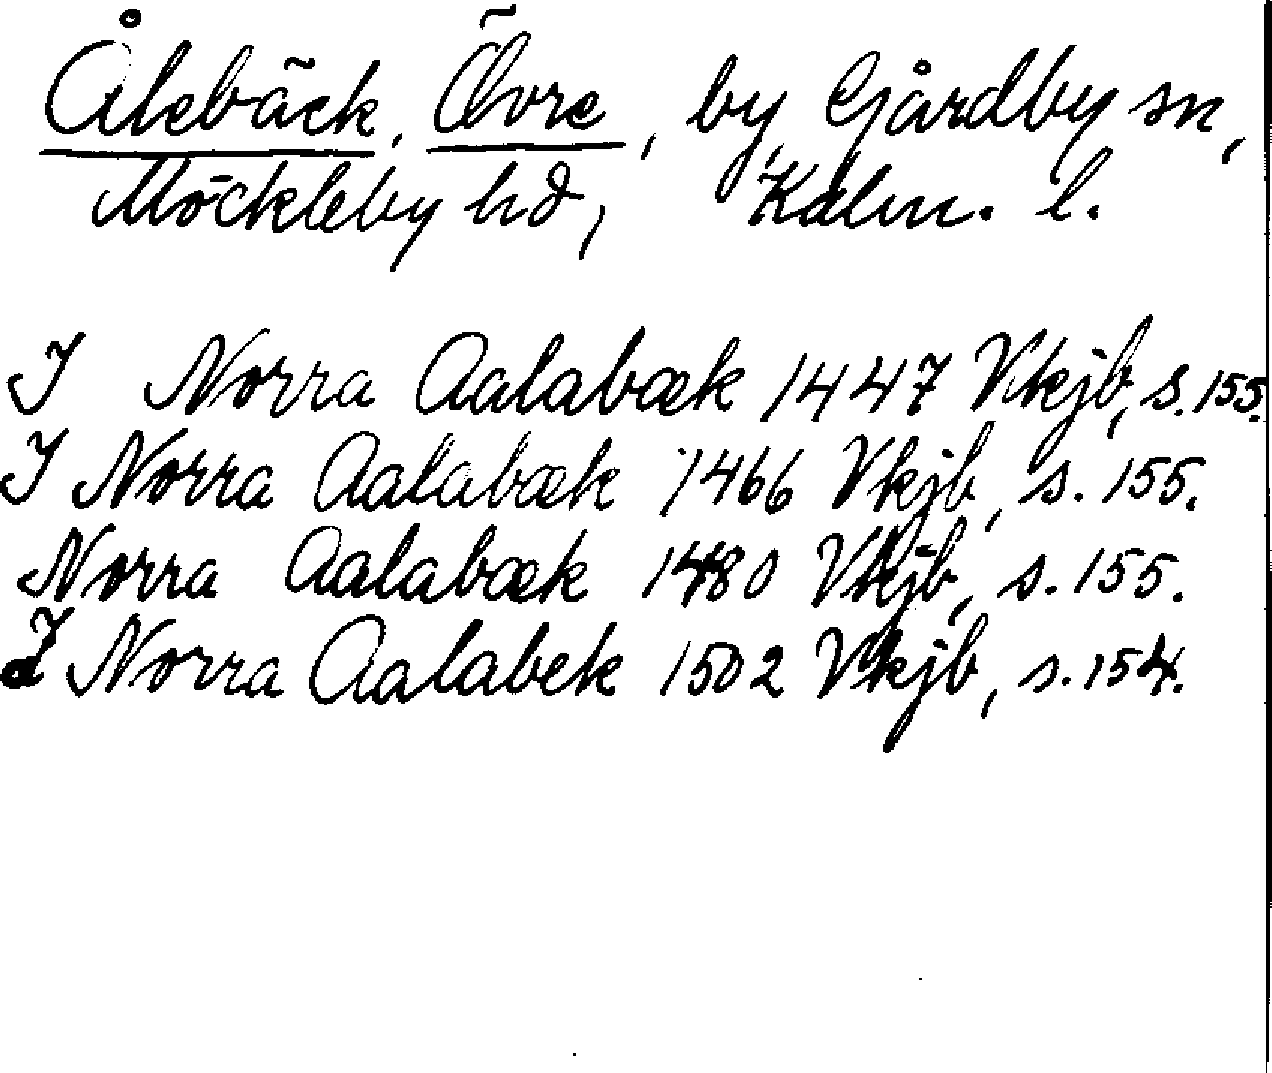 Ålebäck, Övre, by, Gårdby sn,
Möckleby hd, Kalm. l.
I Norra Aalabæk 1447 Vkjb, s. 155.
I Norra Aalabæk 1466 Vkjb, s. 155.
Norra Aalabæk 1480 Vkjb, s. 155.
I Norra Aalabek 1502 Vkjb, s. 154.